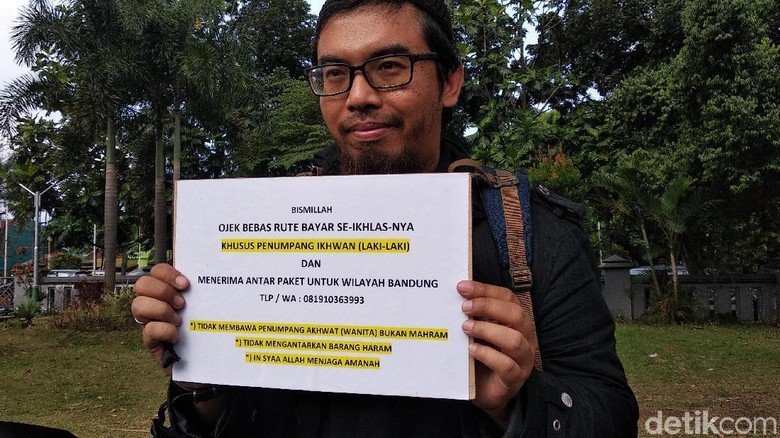 BISMILLAH
OJEK BEBAS RUTE BAYAR SE-IKHLAS-NYA
KHUSUS PENUMPANG IKHWAN (LAKI-LAKI)
DAN
MENERIMA ANTAR PAKET UNTUK WILAYAH BANDUNG
TLP / WA : 081910363993
*) TIDAK MEMBAWA PENUMPANG AKHWAT (WANITA) BUKAN MAHRAM
*) TIDAK MENGANTARKAN BARANG HARAM
*) IN SYAA ALLAH MENJAGA AMANAH
detikcom